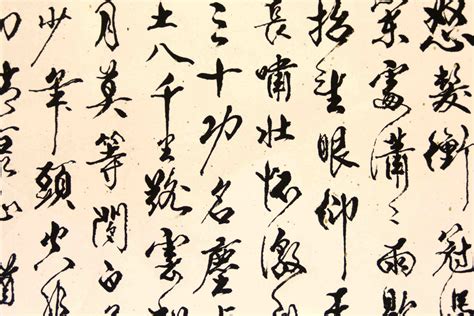 怒髮衝冠
處瀟々雨歇
抬望眼仰天
長嘯壯懷激
三十功名塵
土八千里路雲和
月莫等閒白
少年頭空悲